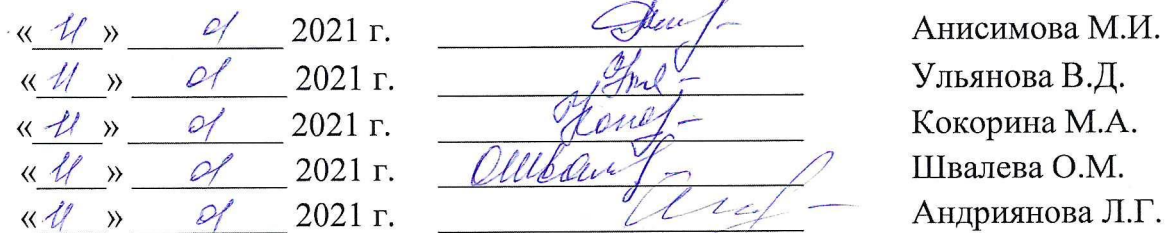 « 11 » 01 2021 г. Анисимова М.И.
« 11 » 01 2021 г. Ульянова В.Д.
« 11 » 01 2021 г. Кокорина М.А.
« 11 » 01 2021 г. Швалева О.М.
« 11 » 01 2021 г. Андриянова Л.Г.